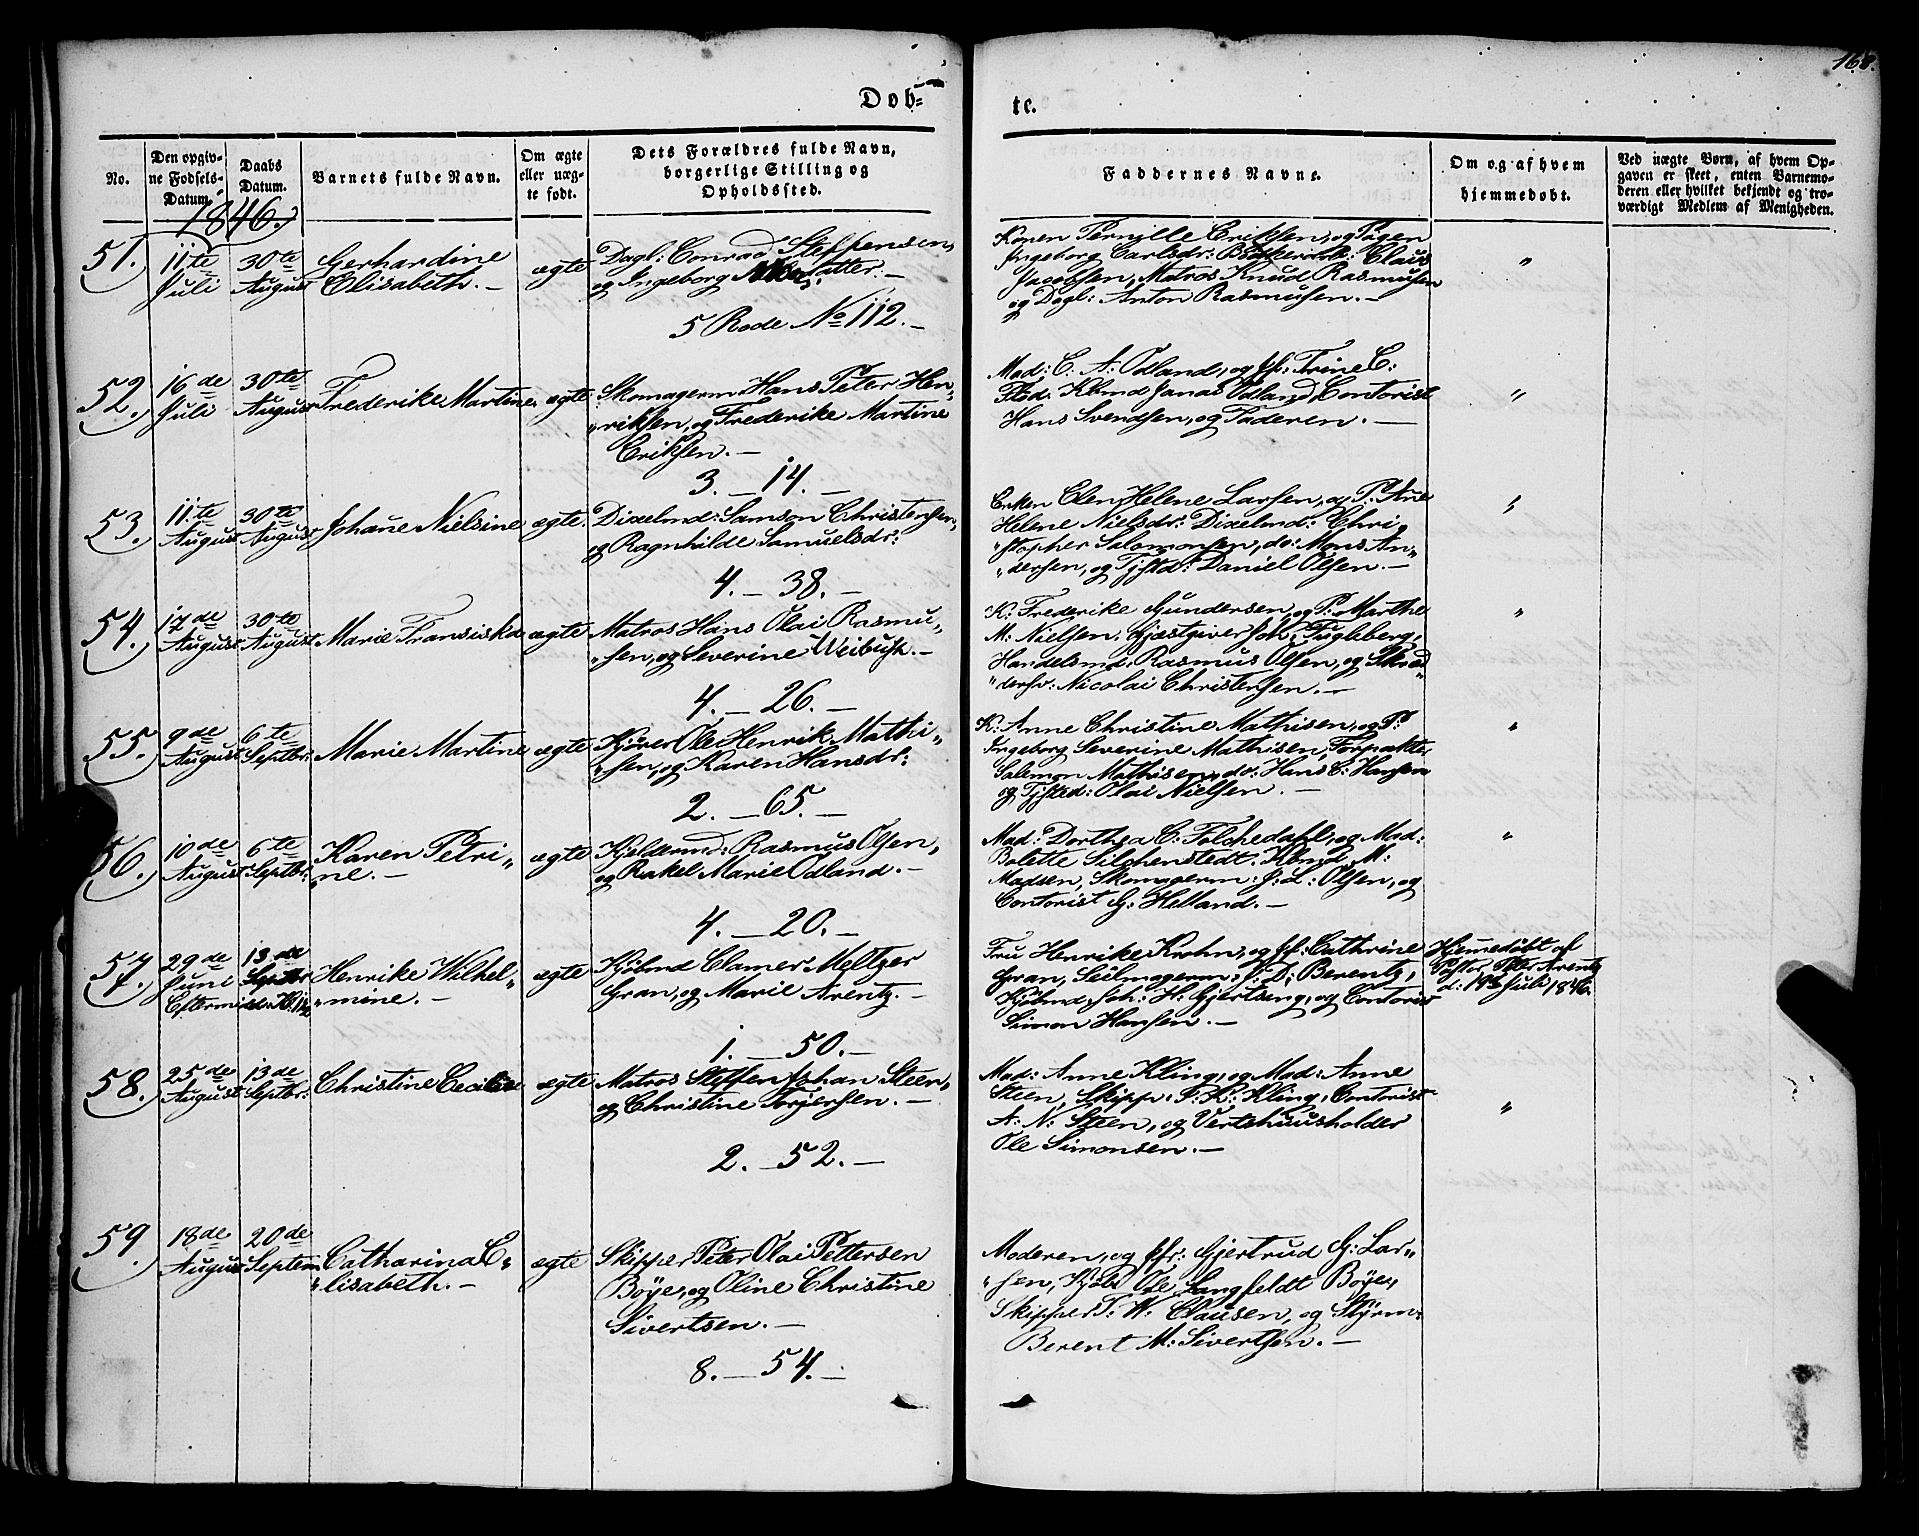 168.
Døb-
te.
No.
Den opgiv-
ne Fødsels-
Datum.
Daabs
Datum.
Barnets fulde Navn.
Om ægte
eller uæg-
te født.
Dets Forældres fulde Navn,
borgerlige Stilling og
Opholdssted.
Faddernes Navne.
Om og af hvem
hjemmedøbt.
Ved uægte Børn, af hvem Op-
gaven er skeet, enten Barnemo-
deren eller hvilket bekjendt og tro-
værdigt Medlem af Menigheden.
1846.
51.
11te
Juli
30te
August
Gerhardine
Elisabeth.-
ægte
Dagl: Conrad Steffensen,
og Ingeborg
5 Rode No 112.-
Konen Pernille Eriksen, og Pigen
Ingeborg Carlsdr: Claus
Jacobsen, Matros Knud Rasmusen
og Dagl: Anton Rasmusen.-
"
52.
16de
Juli
30te
August
Frederike Martine
ægte
Skomagerm Hans Peter Hen-
"riksen, og Frederike Martine
Eriksen.-
3.-14.-
Mad: C. A: Odland, og Jfr: Trine C:
Flod. Kbmd Janas Odland, Contorist
Hans Svendsen, og Faderen.-
"
53.
11te
August
30te
August
Johañe Nielsine
ægte.
Dixelmd: Samson Christensen,
og Ragnhilde Samuelsdr:
4.-38.-
Enken Elen Helene Larsen, og P: Ane
Helene Nielsdr: Dixelmd: Chri-
"stopher Salomonsen, do: Mons An-
"dersen, og Tjstd: Daniel Olsen.-
"
54.
17de
August
30te
August
Marie Fransiska
ægte
Matros Hans Olai Rasmu-
"sen, og Severine Weibush.-
4.-26.-
K: Frederike Gundersen, og P: Marthe
M: Nielsen, Gjæstgiver Joh: Fugleberg,
Handelsmd: Rasmus Olsen, og Skræd
"dersv: Nicolai Christensen.-
"
55.
9de
August
6te
Septbr:
Marie Martine
ægte
Kjører Ole Henrik Mathi-
"sen, og Karen Hansdr:
2.-65.-
K: Anne Christine Mathisen, og P:
Ingeborg Severine Mathisen, Forpakter
Salemon Mathisen, do: Hans C: Hansen
og Tjsted: Olai Nielsen.-
"
56.
10de
August
6te
Septbr:
Karen Petri-
"ne.-
ægte
Kjeldermd: Rasmus Olsen,
og Rakel Marie Odland.-
4.-20.-
Mad: Dorthea C: Folchedahl, og Mad:
Bolette Silchenstedt. Kbmd M:
Madsen, Skomagerm: J: L: Olsen, og
Contorist G: Helland.-
"
57.
29de
Juni
13de
Septbr
Henrike Wilhel-
"mine.-
ægte
Kjöbmd Clamer Meltzer
Gran, og Marie Arentz.-
1.-50.-
Fru Henrike Krohn, og Jfr: Cathrine
Gran, Seilmagerm: J: D: Berentz,
Kjöbmd Joh: H: Gjertsen, og Contorist
Simon Hansen.-
Hjemmedöbt af
Pastor Peter Arentz
Juli 1846.
58.
25de
August
13de
Septbr:
Christine Cecilie
ægte
Matros Steffen Johan Steen,
og Christine Torjersen.-
2.-52.-
Mad: Anne Kling, og Mad: Anne
Steen, Skipp: P: R: Kling, Contorist
A: N: Steen, og Vertshuusholder
Ole Simonsen.-
"
59.
18de
August
20de
Septem
Catharina E-
"lisabeth.-
ægte
Skipper Peter Olai Pettersen
Böye, og Oline Christine
Sivertsen.-
8.-54.-
Moderen, og Jfr: Gjertrud G: Lar-
"sen, Kjöbd Ole Langfeldt Böye,
Skipper T: W: Clausen, og Styrm:
Berent M: Sivertsen.-